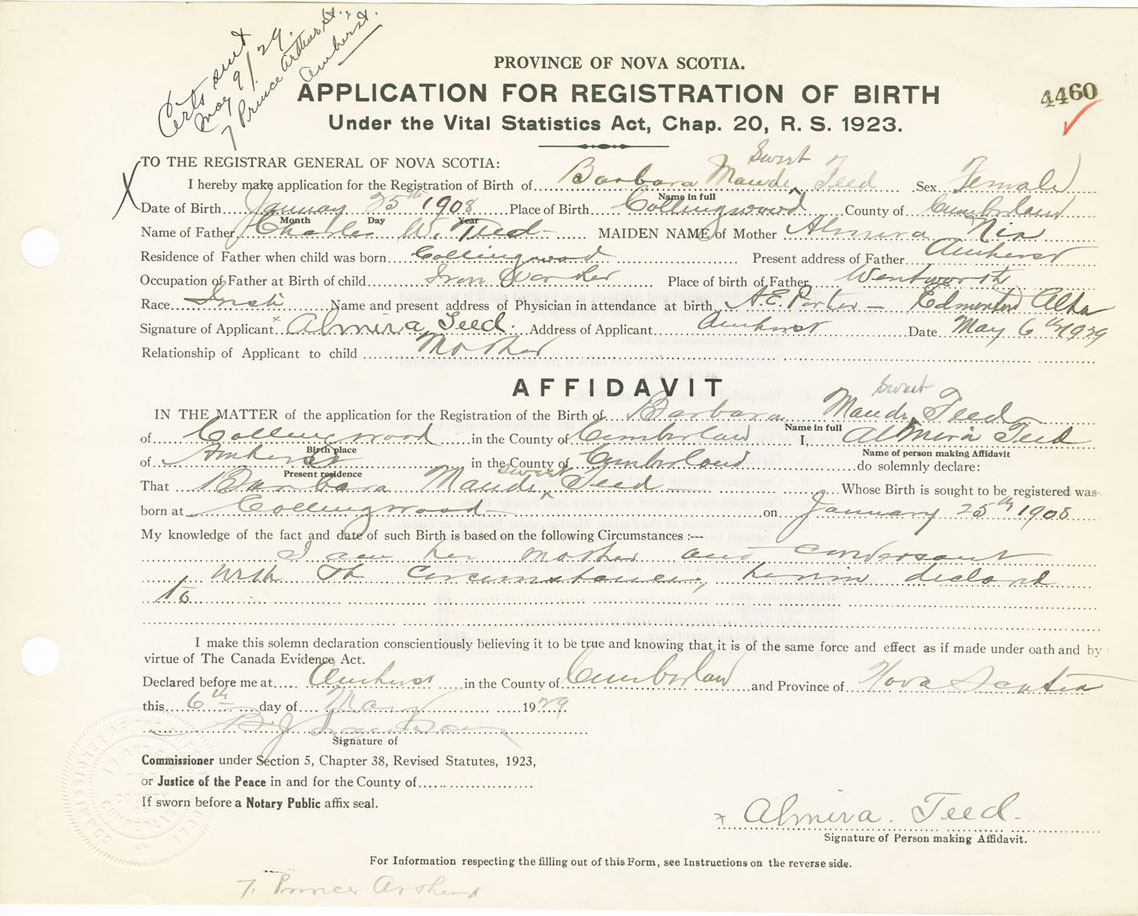 Certs sent
May 9/29.
7 Prince Arthur St.,
Amherst.
PROVINCE OF NOVA SCOTIA.
APPLICATION FOR REGISTRATION OF BIRTH
4460
Under the Vital Statistics Act, Chap. 20, R. S. 1923.
TO THE REGISTRAR GENERAL OF NOVA SCOTIA:
Sweet
X I hereby make application for the Registration of Birth of Barbara Maude Teed Sex Female
Name in full
Date of Birth January 25th 1908 Place of Birth Collingwood County of Cumberland
Month Day Year
Name of Father Charles W. Teed MAIDEN NAME of Mother Almira Nix
Residence of Father when child was born Collingwood Present address of Father Amherst
Occupation of Father at Birth of child Iron Worker Place of birth of Father Wentworth
Race Irish Name and present address of Physician in attendance at birth A.E. Porter - Edmonton Alta
Signature of Applicant x Almira Teed. Address of Applicant Amherst Date May 6th 1929
Relationship of Applicant to child Mother
AFFIDAVIT
Sweet
IN THE MATTER of the application for the Registration of the Birth of Barbara Maude Teed
Name in full
of Collingwood in the County of Cumberland I, Almira Teed
Birth place Name of person making Affidavit
of Amherst in the County of Cumberland do solemnly declare:
Present residence
Sweet
That Barbara Maude Teed Whose Birth is sought to be registered was
born at Collingwood on January 25th 1908
My knowledge of the fact and date of such Birth is based on the following Circumstances :---
I am her mother and conversant
with the circumstances, herein declard
to
I make this solemn declaration conscientiously believing it to be true and knowing that it is of the same force and effect as if made under oath and by
virtue of The Canada Evidence Act.
Declared before me at Amherst in the County of Cumberland and Province of Nova Scotia
this 6th day of May 1929
Signature of
Commissioner under Section 5, Chapter 38, Revised Statutes, 1923,
or Justice of the Peace in and for the County of
If sworn before a Notary Public affix seal.
x Almira. Teed.
Signature of Person making Affidavit.
For Information respecting the filling out of this Form, see Instructions on the reverse side.
7, Prince